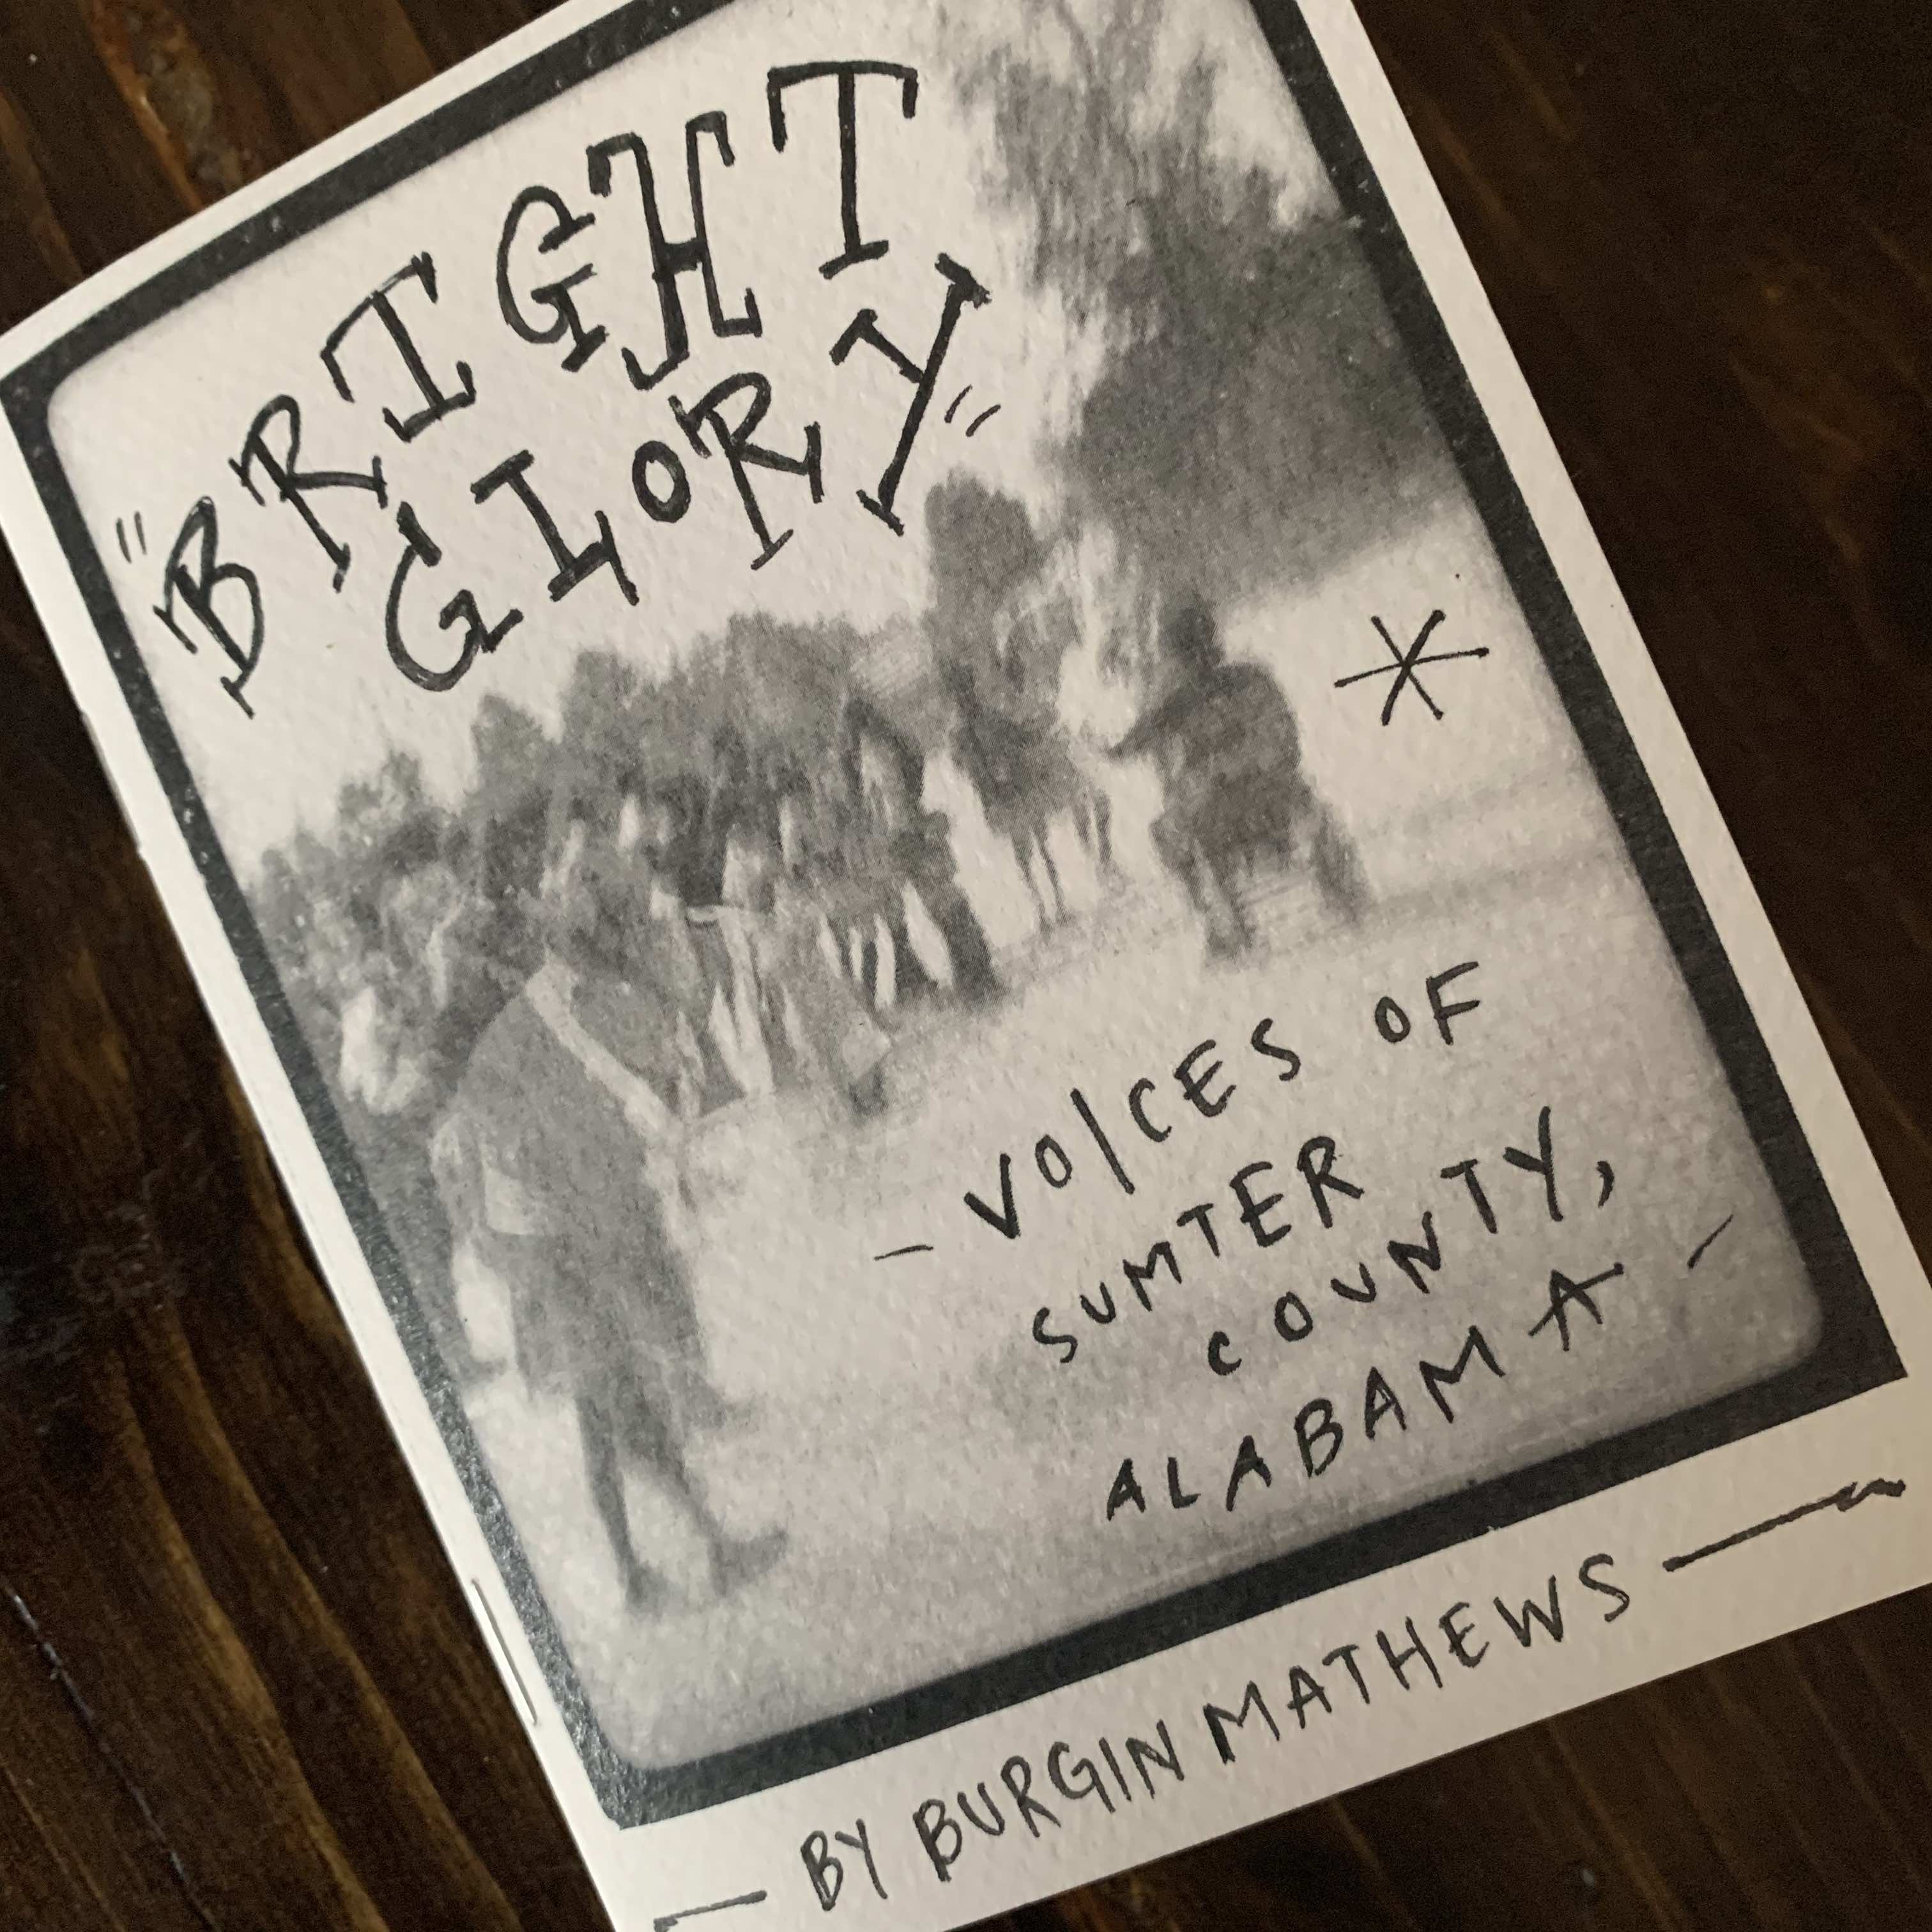 "BRIGHT
GLORY"
*
- VOICES OF
SUMTER
COUNTY,
ALABAMA -
— BY BURGIN MATHEWS —